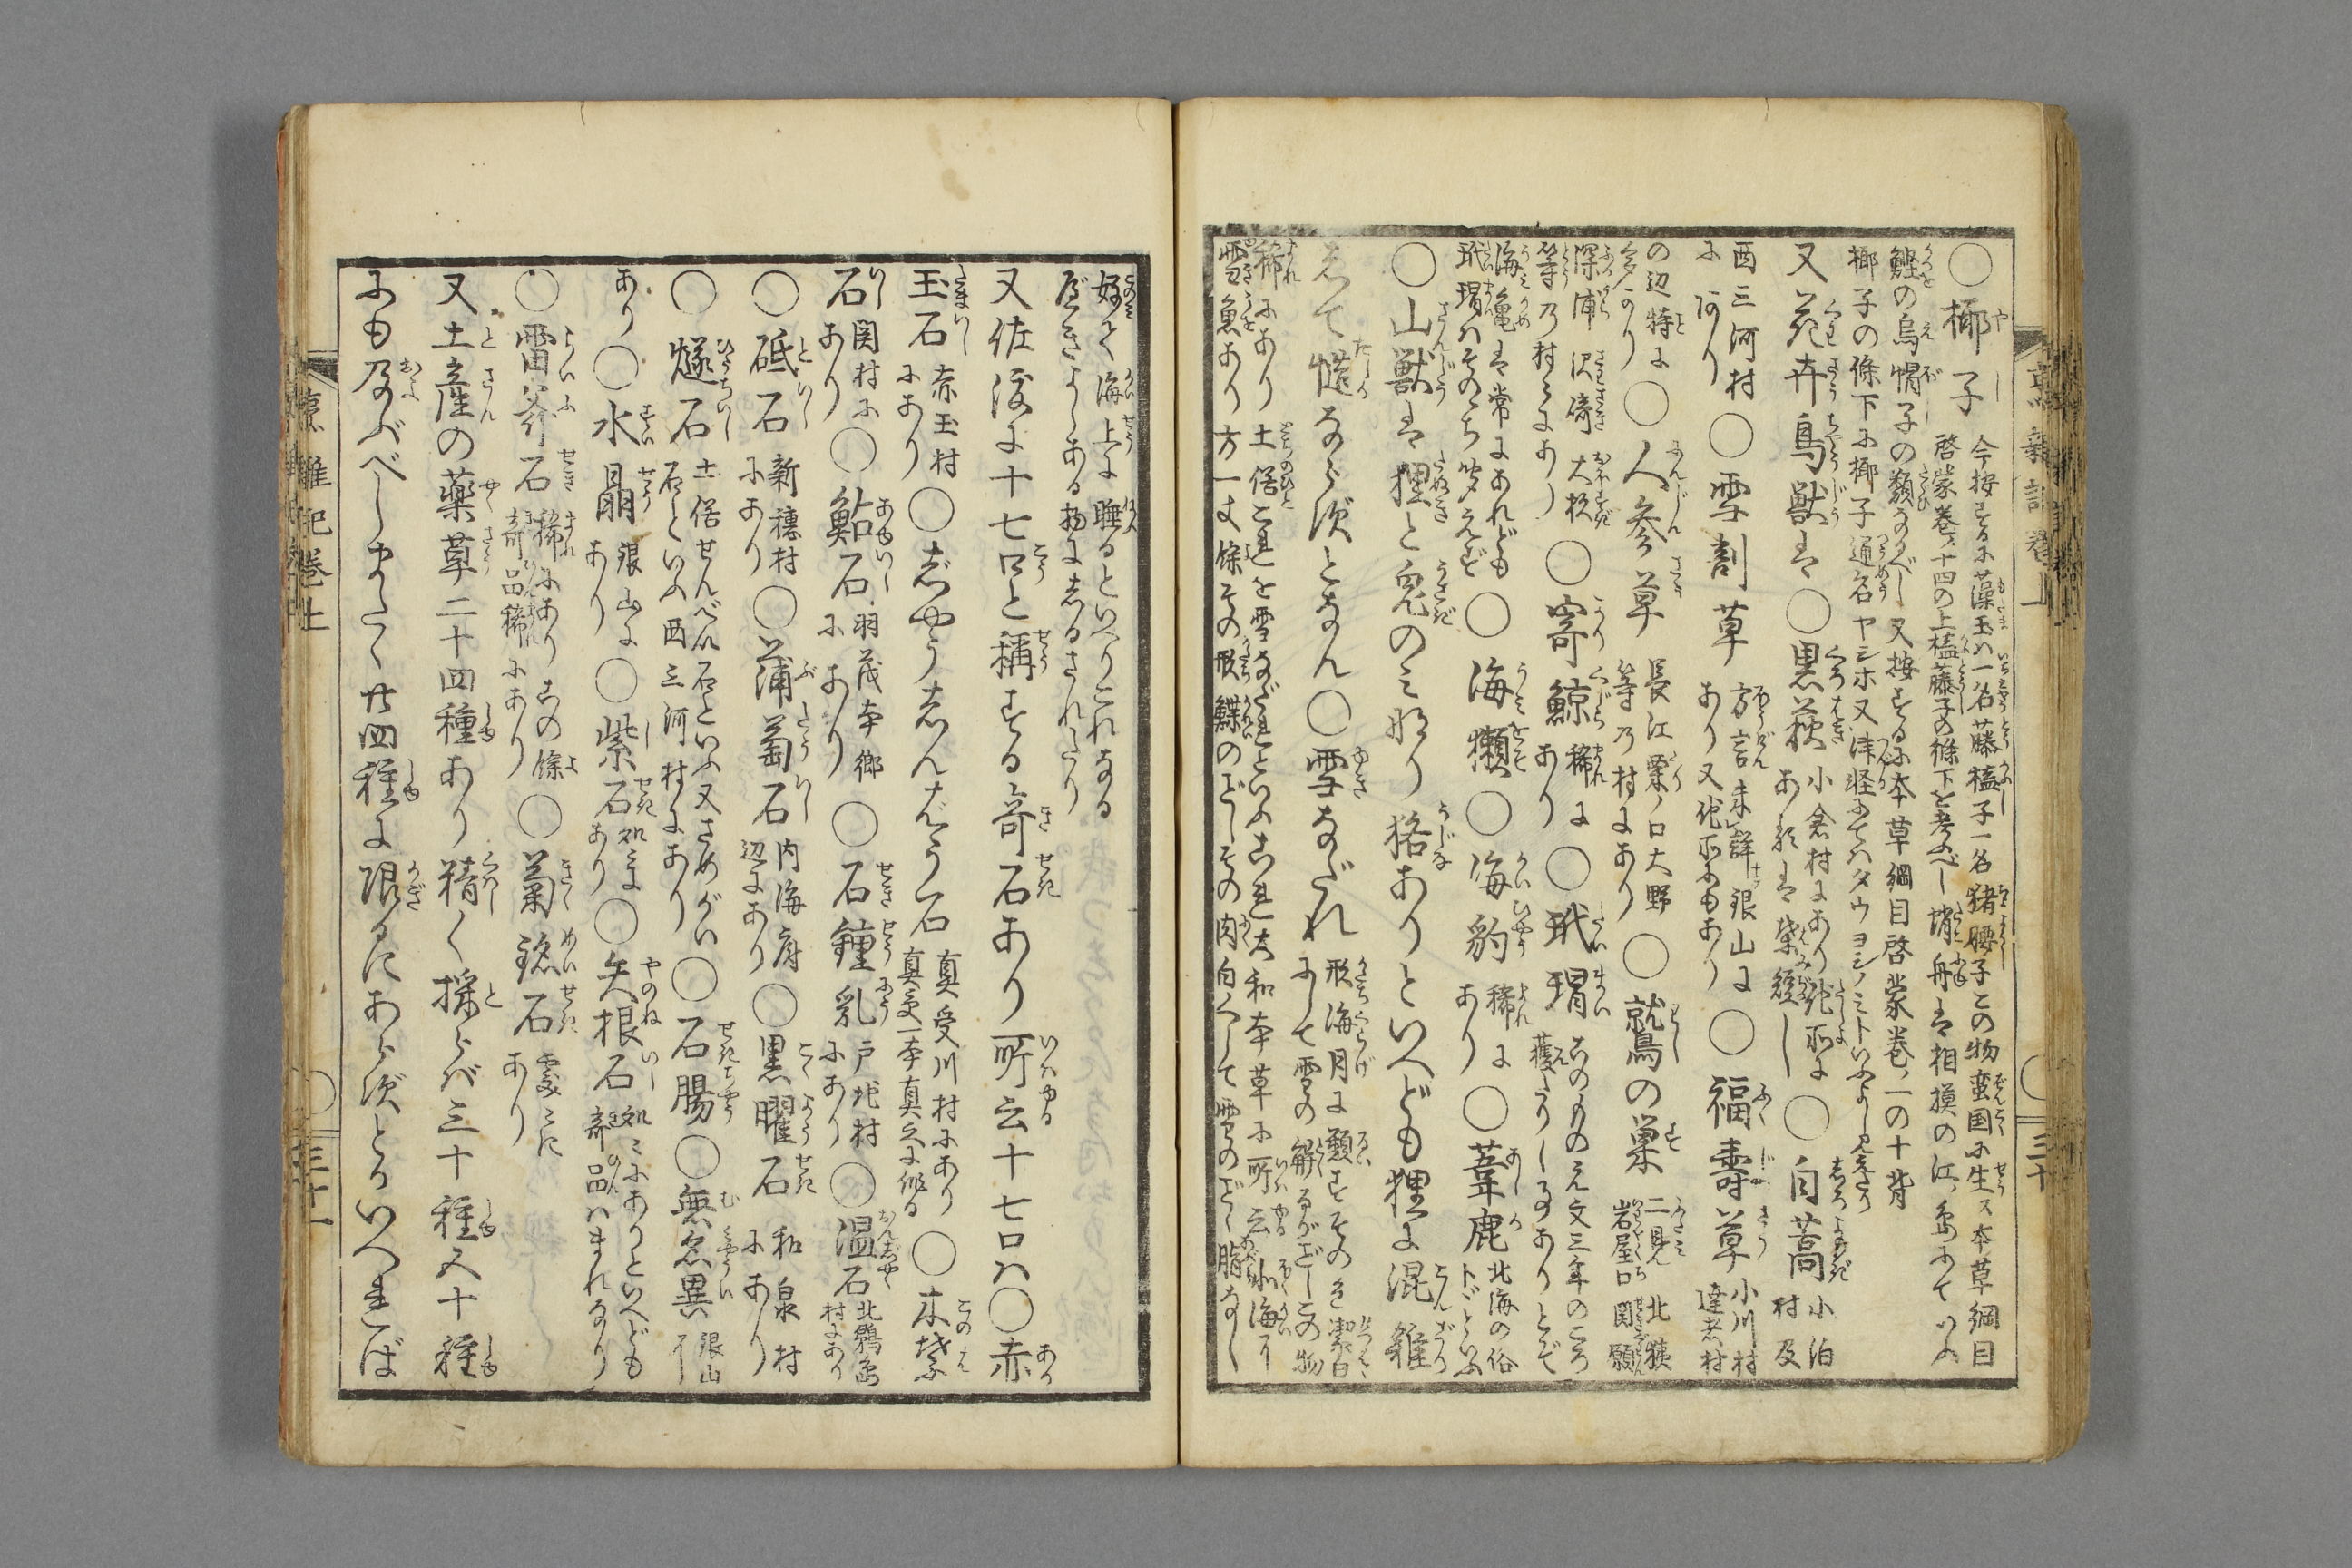 ○椰子
今按ずるに藻玉ハ一名藤榼子一名猪腰子この物蛮国に生ス本草綱目
啓蒙巻ノ十四の上榼藤子の條下を考ふべし
舟は相摸の江ノ島にていふ
鰹の烏帽子の類なるべし又按ずるに本草綱目啓蒙巻ノ一の十
椰子の條下に椰子通名ヤシホ又津軽にてハタウヨシノミトいふよし見えたり
又花卉鳥獣は○黒萩
小倉村にあり他所に
あれは葉
○白蒿
小泊
村及
西三河村
にあり
○雪割草
方言未詳銀山に
あり又他所にもあり
○福壽草
小川村
達者村
の辺特に
多かり
○人参草
長江粟ノ口大野
等乃村にあり
○鷲の巣
二見北狭
岩屋口関願
深浦沢﨑大杉
等乃村々にあり
○寄鯨
稀に
あり
○玳瑁
このもの文三年のころ
獲たりし事ありとぞ
海亀は常にあれども
玳瑁ハそのゝち聞えず
○海獺○海豹
稀に
あり
○葦鹿
北海の俗
トドといふ
○山獣は狸と兎のミなり狢ありといへども狸に混雑
して慥ならずとなん○雪なだれ
形海月に類すその色潔白
にして雪の解るがごとしこの物
稀にあり土俗これを雪なだれといふこれ大和本草に所云氷海月
雪魚あり方一丈餘その形鰈のごとしその肉白くして雪のごとし脂なし
三十
好て海上に睡るといへりこれなる
べきよしある物にしるされたり
又佐渡に十七口と稱する竒石あり所云十七口ハ○赤
玉石
赤玉村
にあり
○しやうしんじやう石
真受川村にあり
○木葉
石
関村に
あり
○鮎石
羽茂本郷
にあり
○石鐘乳
戸地村
にあり
○温石
北鵜島
村にあり
○砥石
新穂村
にあり
○蒲萄石
内海府
辺にあり
○黒曜石
和泉村
にあり
○燧石
土俗せんべい石といふ又さめがい
石といふ西三河村にあり
○石腸○無名異
銀山
に
あり○水晶
銀山に
あり
○紫石
処々に
あり
○矢根石
処々にありといへども
竒品ハまれなり
○雷斧石
稀にありこの餘
竒品稀にあり
○菊銘石
處々に
あり
又土産の薬草二十四種あり精く採らバ三十種五十種
にも及ぶべしまた〻廿四種に限るにあらずとかいへれば
雜記巻上
三十一